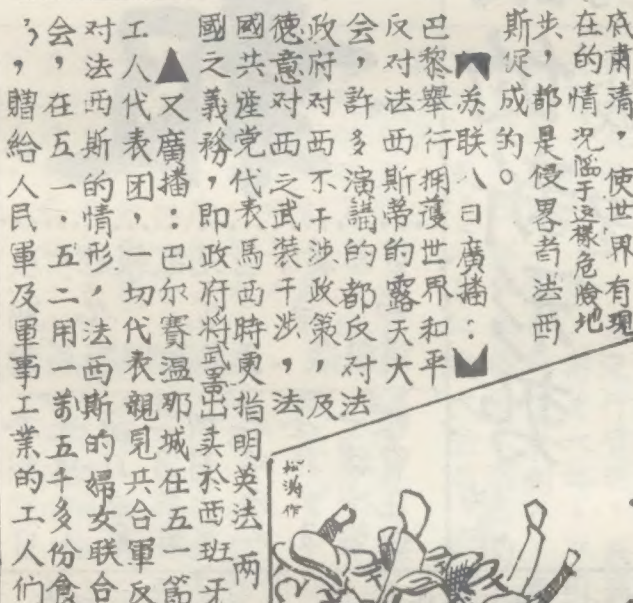 底肃清，使世界有现
在的情况陷于这樣危險地
步，都是侵畧者法西
斯促成的。
苏联八日廣播：
巴黎舉行拥護世界和平
反对法西斯蒂的露天大
会，許多演講的都反对法
政府对西不干涉政策，及
德意对西之武装干涉，法
國共產党代表馬西時更指明英法两
國之義務，即政府将武器出卖於西班牙
▲又廣播：巴尔賽温那城在五一節
工人代表团，一切代表親見共合軍反
对法西斯的情形，法西斯的婦女联合
会，在五一．五二用一萬五千多份食
，贈給人民軍及軍事工業的工人们
松涛作